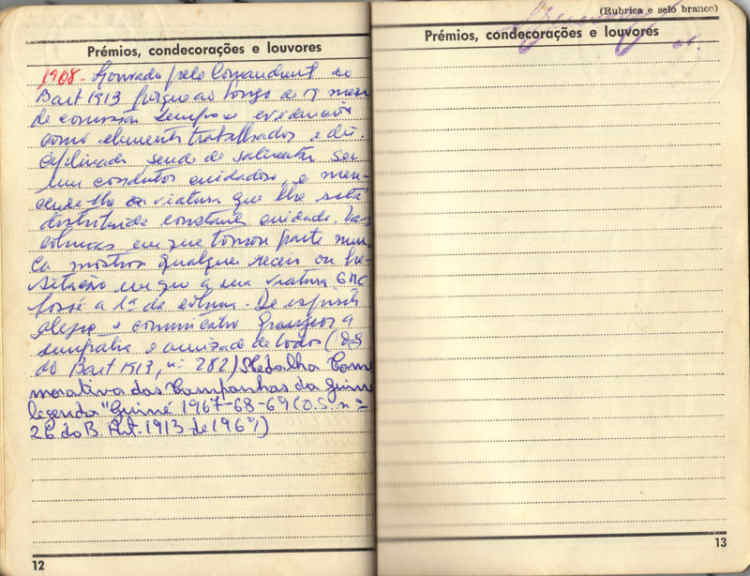 Prémios, condecorações e louvores
1968 - Louvado pelo Comandante do
Bart 1913 porque ao longo de 17 mes
de comissão sempre se evidenciou
como elemento trabalhador e dis-
ciplinado sendo de salientar ser
um condutor cuidadoso, e mere-
cendo-lhe a viatura que lhe está
distribuida constante cuidado. Nas
colunas em que tomou parte nun-
ca mostrou qualquer receio ou he-
sitação em que a sua viatura GMC
fosse a 1ª da coluna. De espírito
alegre e comunicativo granjeou a
simpatia e amizade de todos (O.S
do Bart 1913, nº 282) Medalha Com
morativa das Campanhas da Guiné
legenda "Guiné 1967-68-69 (O.S. nº
26 do B. Art. 1913 de 1969)
12
(Rubrica e selo branco)
Prémios, condecorações e louvores
13